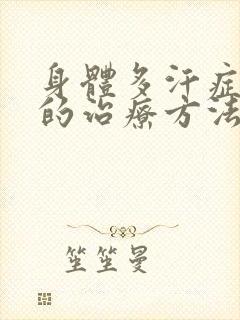 身體多汗症
的治療方法
笙笙曼